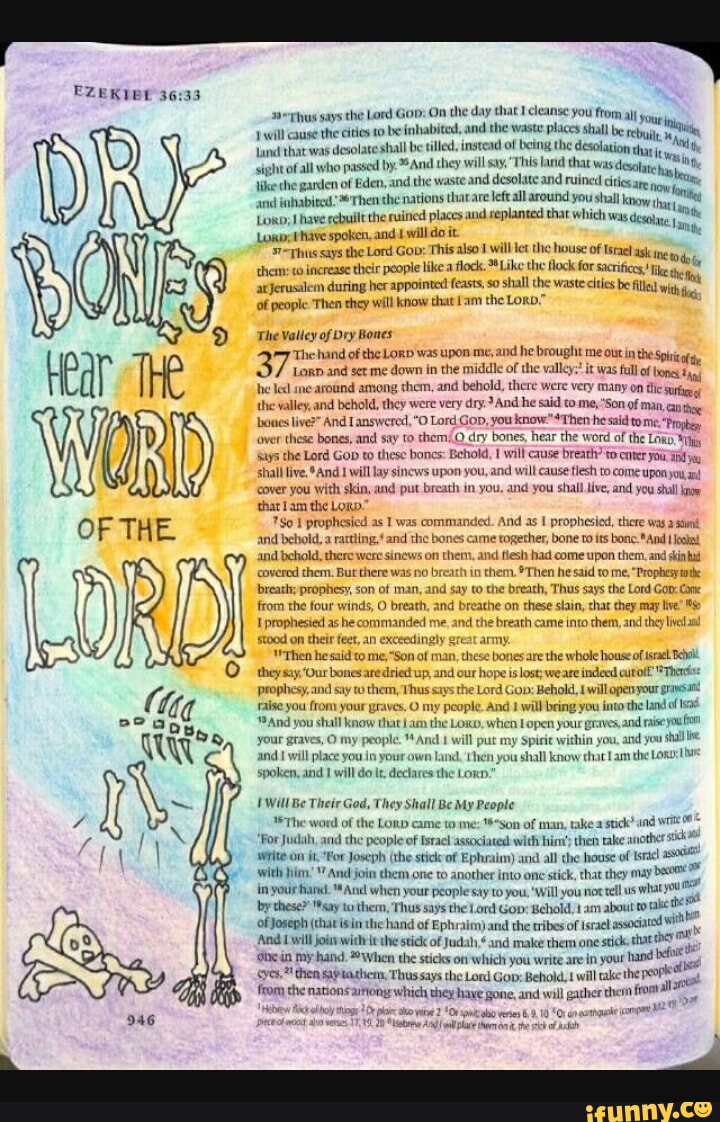 EZEKIEL 36:33
DRY
BONES,
HEAR THE
WORD
OF THE
LORD!
33 "Thus says the Lord GOD: On the day that I cleanse you from all your iniquities,
I will cause the cities to be inhabited, and the waste places shall be rebuilt. 34 And the
land that was desolate shall be tilled, instead of being the desolation that it was in the
sight of all who passed by. 35 And they will say, 'This land that was desolate has become
like the garden of Eden, and the waste and desolate and ruined cities are now fortified
and inhabited.' 36 Then the nations that are left all around you shall know that I am the
LORD; I have rebuilt the ruined places and replanted that which was desolate. I am the
LORD; I have spoken, and I will do it.
37 "Thus says the Lord GOD: This also I will let the house of Israel ask me to do for
them: to increase their people like a flock. 38 Like the flock for sacrifices,1 like the flock
at Jerusalem during her appointed feasts, so shall the waste cities be filled with flocks
of people. Then they will know that I am the LORD."
The Valley of Dry Bones
37 The hand of the LORD was upon me, and he brought me out in the Spirit of the
LORD and set me down in the middle of the valley;2 it was full of bones. 2 And
he led me around among them, and behold, there were very many on the surface of
the valley, and behold, they were very dry. 3 And he said to me, "Son of man, can these
bones live?" And I answered, "O Lord GOD, you know." 4 Then he said to me, "Prophesy
over these bones, and say to them, O dry bones, hear the word of the LORD. 5 Thus
says the Lord GOD to these bones: Behold, I will cause breath3 to enter you, and you
shall live. 6 And I will lay sinews upon you, and will cause flesh to come upon you, and
cover you with skin, and put breath in you, and you shall live, and you shall know
that I am the LORD."
7 So I prophesied as I was commanded. And as I prophesied, there was a sound,
and behold, a rattling,4 and the bones came together, bone to its bone. 8 And I looked,
and behold, there were sinews on them, and flesh had come upon them, and skin had
covered them. But there was no breath in them. 9 Then he said to me, "Prophesy to the
breath; prophesy, son of man, and say to the breath, Thus says the Lord GOD: Come
from the four winds, O breath, and breathe on these slain, that they may live." 10 So
I prophesied as he commanded me, and the breath came into them, and they lived and
stood on their feet, an exceedingly great army.
11 Then he said to me, "Son of man, these bones are the whole house of Israel. Behold,
they say, 'Our bones are dried up, and our hope is lost; we are indeed cut off.' 12 Therefore
prophesy, and say to them, Thus says the Lord GOD: Behold, I will open your graves and
raise you from your graves, O my people. And I will bring you into the land of Israel.
13 And you shall know that I am the LORD, when I open your graves, and raise you from
your graves, O my people. 14 And I will put my Spirit within you, and you shall live,
and I will place you in your own land. Then you shall know that I am the LORD; I have
spoken, and I will do it, declares the LORD."
I Will Be Their God, They Shall Be My People
15 The word of the LORD came to me: 16 "Son of man, take a stick5 and write on it,
'For Judah, and the people of Israel associated with him'; then take another stick and
write on it, 'For Joseph (the stick of Ephraim) and all the house of Israel associated
with him.' 17 And join them one to another into one stick, that they may become one
in your hand. 18 And when your people say to you, 'Will you not tell us what you mean
by these?' 19 say to them, Thus says the Lord GOD: Behold, I am about to take the stick
of Joseph (that is in the hand of Ephraim) and the tribes of Israel associated with him.
And I will join with it the stick of Judah,6 and make them one stick, that they may be
one in my hand. 20 When the sticks on which you write are in your hand before their
eyes, 21 then say to them, Thus says the Lord GOD: Behold, I will take the people of Israel
from the nations among which they have gone, and will gather them from all around,
1 Hebrew flock of holy things 2 Or plain; also verse 2 3 Or spirit; also verses 6, 9, 10 4 Or an earthquake (compare 3:12, 13) 5 Or one
piece of wood; also verses 17, 19, 20 6 Hebrew And I will place them on it, the stick of Judah
946
ifunny.co